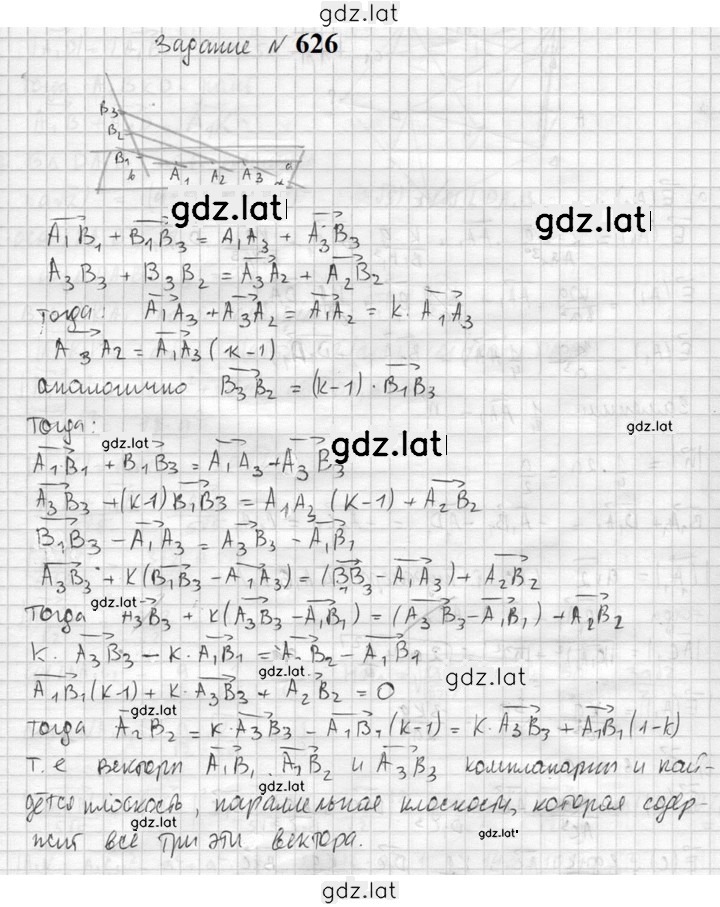 gdz.lat
Задание № 626
B₃
B₂
B₁
b
A₁ A₂ A₃
a
α
gdz.lat
gdz.lat
A₁B₁ + B₁B₃ = A₁A₃ + A₃B₃
A₃B₃ + B₃B₂ = A₃A₂ + A₂B₂
тогда: A₁A₃ + A₃A₂ = A₁A₂ = k · A₁A₃
A₃A₂ = A₁A₃(k-1)
аналогично B₃B₂ = (k-1) · B₁B₃
Тогда:
gdz.lat
gdz.lat
gdz.lat
A₁B₁ + B₁B₃ = A₁A₃ + A₃B₃
A₃B₃ + (k-1)B₁B₃ = A₁A₃(k-1) + A₂B₂
B₁B₃ - A₁A₃ = A₃B₃ - A₁B₁
A₃B₃ + k(B₁B₃ - A₁A₃) = (B₁B₃ - A₁A₃) + A₂B₂
gdz.lat
Тогда A₃B₃ + k(A₃B₃ - A₁B₁) = (A₃B₃ - A₁B₁) + A₂B₂
k · A₃B₃ - k · A₁B₁ = A₂B₂ - A₁B₁
gdz.lat
gdz.lat
A₁B₁(k-1) + k · A₃B₃ + A₂B₂ = 0
gdz.lat
тогда A₂B₂ = k · A₃B₃ - A₁B₁(k-1) = k · A₃B₃ + A₁B₁(1-k)
т.е векторы A₁B₁, A₂B₂ и A₃B₃ компланарны и най-
дется плоскость, параллельная плоскости, которая содер-
gdz.lat
жит все три эти вектора.
gdz.lat
gdz.lat